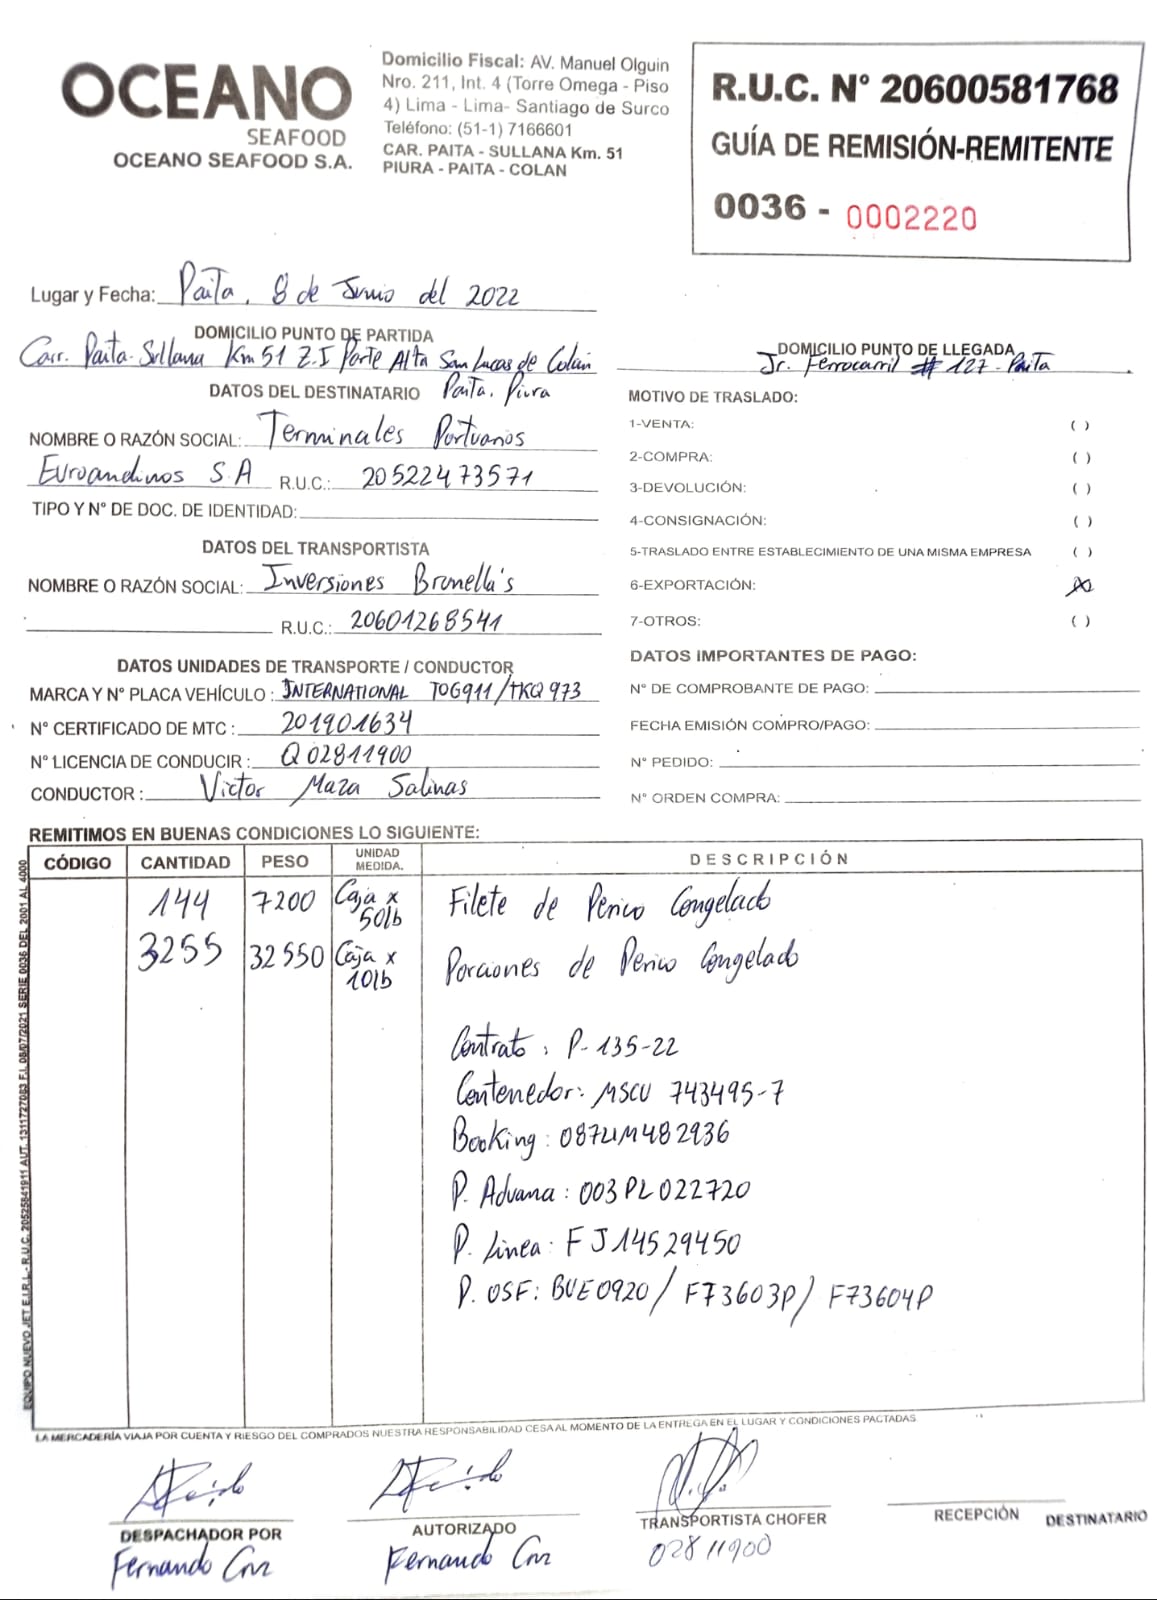 OCEANO
SEAFOOD
OCEANO SEAFOOD S.A.
Domicilio Fiscal: AV. Manuel Olguin
Nro. 211, Int. 4 (Torre Omega - Piso
4) Lima - Lima- Santiago de Surco
Teléfono: (51-1) 7166601
CAR. PAITA - SULLANA Km. 51
PIURA - PAITA - COLAN
R.U.C. N° 20600581768
GUÍA DE REMISIÓN-REMITENTE
0036 - 0002220
Lugar y Fecha: Paita, 8 de Junio del 2022
DOMICILIO PUNTO DE PARTIDA
Carr. Paita-Sullana Km 51 Z.I Parte Alta San Lucas de Colán
Paita. Piura
DOMICILIO PUNTO DE LLEGADA
Jr. Ferrocarril # 127 - Paita
DATOS DEL DESTINATARIO
NOMBRE O RAZÓN SOCIAL: Terminales Portuarios
Euroandinos S.A R.U.C.: 20522473571
TIPO Y N° DE DOC. DE IDENTIDAD:
DATOS DEL TRANSPORTISTA
NOMBRE O RAZÓN SOCIAL: Inversiones Brunella's
R.U.C.: 20601268541
DATOS UNIDADES DE TRANSPORTE / CONDUCTOR
MARCA Y N° PLACA VEHÍCULO : INTERNATIONAL TOG911/TKQ973
N° CERTIFICADO DE MTC : 201901634
N° LICENCIA DE CONDUCIR : Q02811900
CONDUCTOR : Victor Maza Salinas
MOTIVO DE TRASLADO:
1-VENTA: ( )
2-COMPRA: ( )
3-DEVOLUCIÓN: ( )
4-CONSIGNACIÓN: ( )
5-TRASLADO ENTRE ESTABLECIMIENTO DE UNA MISMA EMPRESA ( )
6-EXPORTACIÓN: (X)
7-OTROS: ( )
DATOS IMPORTANTES DE PAGO:
N° DE COMPROBANTE DE PAGO:
FECHA EMISIÓN COMPRO/PAGO:
N° PEDIDO:
N° ORDEN COMPRA:
REMITIMOS EN BUENAS CONDICIONES LO SIGUIENTE:
CÓDIGO CANTIDAD PESO UNIDAD MEDIDA. DESCRIPCIÓN
144 7200 Caja x 50lb Filete de Perico Congelado
3255 32550 Caja x 10lb Porciones de Perico Congelado
Contrato : P-135-22
Contenedor: MSCU 743495-7
Booking : 087LIM482936
P. Aduana : 003PL022720
P. Linea : FJ14529450
P. OSF: BUE0920 / F73603P / F73604P
EQUIPO NUEVO JET E.I.R.L. - R.U.C. 20525841911 AUT. 1311727083 F.I. 08/07/2021 SERIE 0036 DEL 2001 AL 4000
LA MERCADERÍA VIAJA POR CUENTA Y RIESGO DEL COMPRADOS NUESTRA RESPONSABILIDAD CESA AL MOMENTO DE LA ENTREGA EN EL LUGAR Y CONDICIONES PACTADAS
DESPACHADOR POR
Fernando Cruz
AUTORIZADO
Fernando Cruz
TRANSPORTISTA CHOFER
02811900
RECEPCIÓN DESTINATARIO